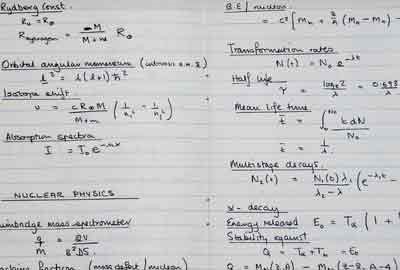 Rydberg Const.
R₀ = R∞
R hydrogen = M / M + m R∞
Orbital angular momentum
l² = l(l+1) ħ²
Isotope shift.
ν = c R∞ M / M + m ( 1/n₁² - 1/n₂² )
Absorption spectra
I = I₀ e
NUCLEAR PHYSICS
mass spectrometer
q / M = 2V / B²DS
fraction (mass defect / nucleon)
B.E / nucleon
= c² [ Mₙ + Z/A (Mₕ - Mₙ) -
Transformation rates
N(t) = N₀ e^-λt
Half life
τ = logₑ2 / λ = 0.693
Mean life time
t̄ = ∫ t dN / N₀
t̄ = 1/λ
Multistage decays.
N₂(t) = N₁(0) λ₁ / λ₂ - λ ( e^-λ₁t -
α - decay
Energy released E₀ = Tα ( 1 +
Stability against
Q = Tα + Tₕ = E₀
Q = Mₙ(Z,A) - Mₙ(Z-2, A-4)